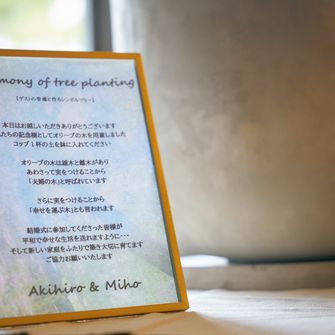 mony of tree planting
【ゲストの皆様と作るシンボルツリー】
本日はお越しいただきありがとうございます
たちの記念樹としてオリーブの木を用意しました
コップ1杯の土を鉢に入れてください
オリーブの木は雄木と雌木があり
あわさって実をつけることから
「夫婦の木」と呼ばれています
さらに実をつけることから
「幸せを運ぶ木」とも言われます
結婚式に参加してくださった皆様が
平和で幸せな生活を送れますように･･･
そして新しい家庭をふたりで築き大切に育てます
ご協力お願いいたします
Akihiro & Miho